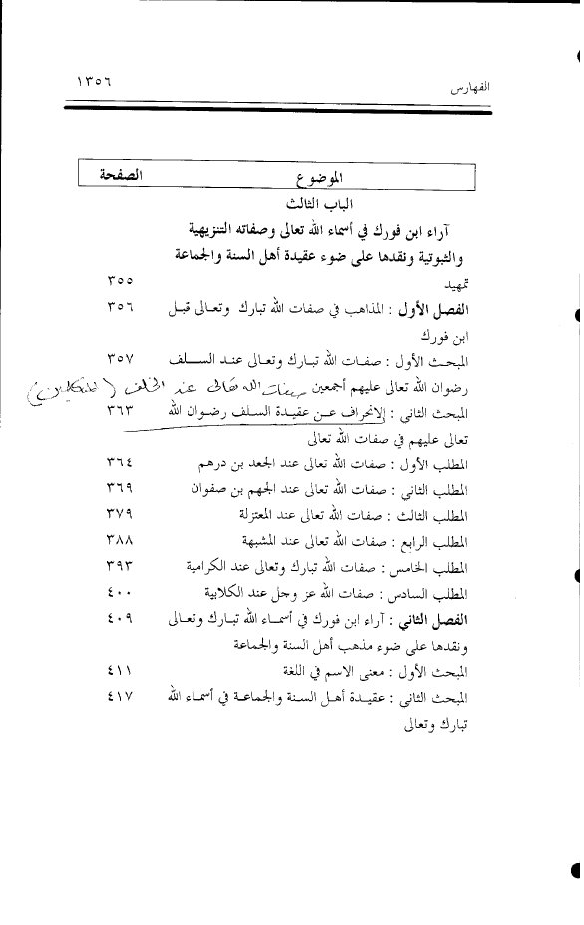 الفهارس ١٣٥٦
الموضوع الصفحة
الباب الثالث
آراء ابن فورك في أسماء الله تعالى وصفاته التنزيهية
والثبوتية ونقدها على ضوء عقيدة أهل السنة والجماعة
تمهيد ٣٥٥
الفصل الأول : المذاهب في صفات الله تبارك وتعالى قبل ٣٥٦
ابن فورك
المبحث الأول : صفات الله تبارك وتعالى عند السلف ٣٥٧
رضوان الله تعالى عليهم أجمعين صفات الله تعالى عند الخلف (المتكلمين)
المبحث الثاني : الانحراف عن عقيدة السلف رضوان الله ٣٦٣
تعالى عليهم في صفات الله تعالى
المطلب الأول : صفات الله تعالى عند الجعد بن درهم ٣٦٤
المطلب الثاني : صفات الله تعالى عند الجهم بن صفوان ٣٦٩
المطلب الثالث : صفات الله تعالى عند المعتزلة ٣٧٩
المطلب الرابع : صفات الله تعالى عند المشبهة ٣٨٨
المطلب الخامس : صفات الله تبارك وتعالى عند الكرامية ٣٩٣
المطلب السادس : صفات الله عز وجل عند الكلابية ٤٠٠
الفصل الثاني : آراء ابن فورك في أسماء الله تبارك وتعالى ٤٠٩
ونقدها على ضوء مذهب أهل السنة والجماعة
المبحث الأول : معنى الاسم في اللغة ٤١١
المبحث الثاني : عقيدة أهل السنة والجماعة في أسماء الله ٤١٧
تبارك وتعالى